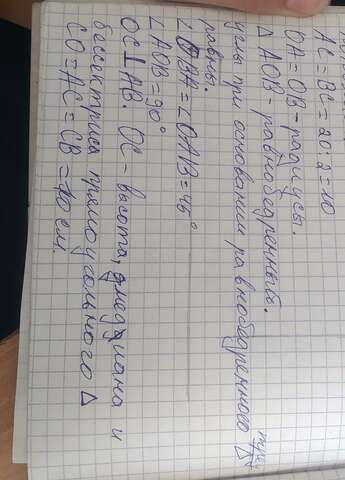 AC = BC = 20:2 = 10
OA = OB - радиусы.
△ AOB - равнобедренный.
углы при основании равнобедренного △
равны.
∠OBA = ∠OAB = 45°
∠AOB = 90°
OC⊥AB. OC - высота, медиана и
бессектриса прямоугольного △
CO = AC = CB = 10 см.